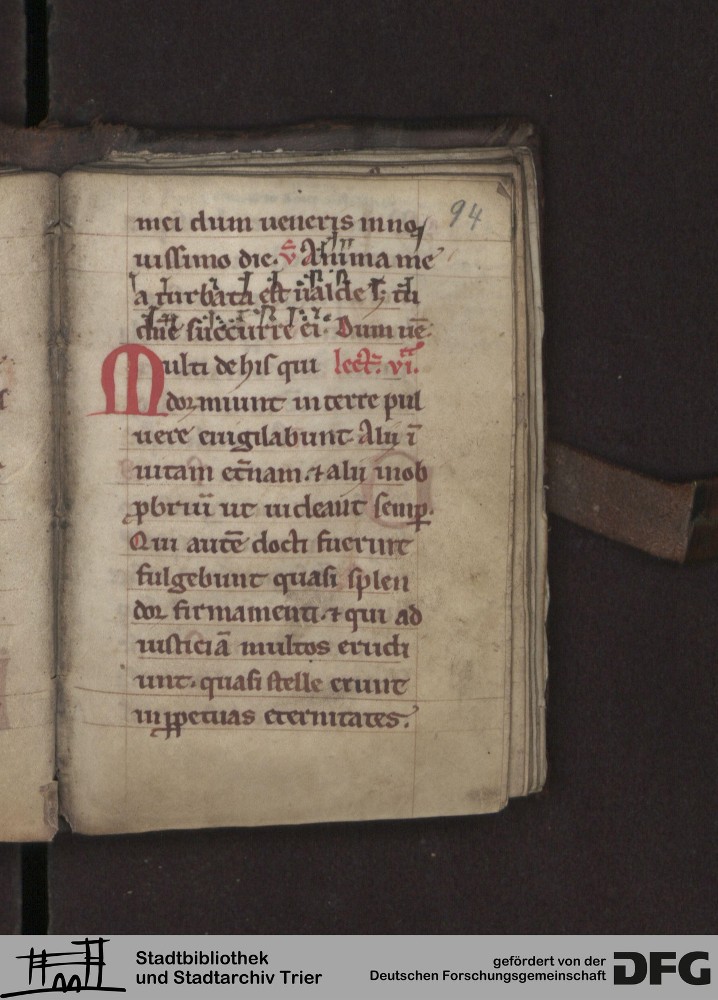 94
mei dum ueneris in no
uissimo die. v̄ Anima me
a turbata est ualde s; tu
dn̄e succurre ei. Dum uē
Multi de his qui lect̄. vi.
dormiunt in terre pul
uere euigilabunt. Alij ī
uitam et̄nam. ⁊ alij in ob
ꝓbriū ut uideant semꝑ.
Qui autē docti fuerint
fulgebunt quasi splen
dor firmamenti. ⁊ qui ad
iusticiā multos erudi
unt. quasi stelle erunt
in ꝑpetuas eternitates.
Stadtbibliothek
und Stadtarchiv Trier
gefördert von der
Deutschen Forschungsgemeinschaft
DFG